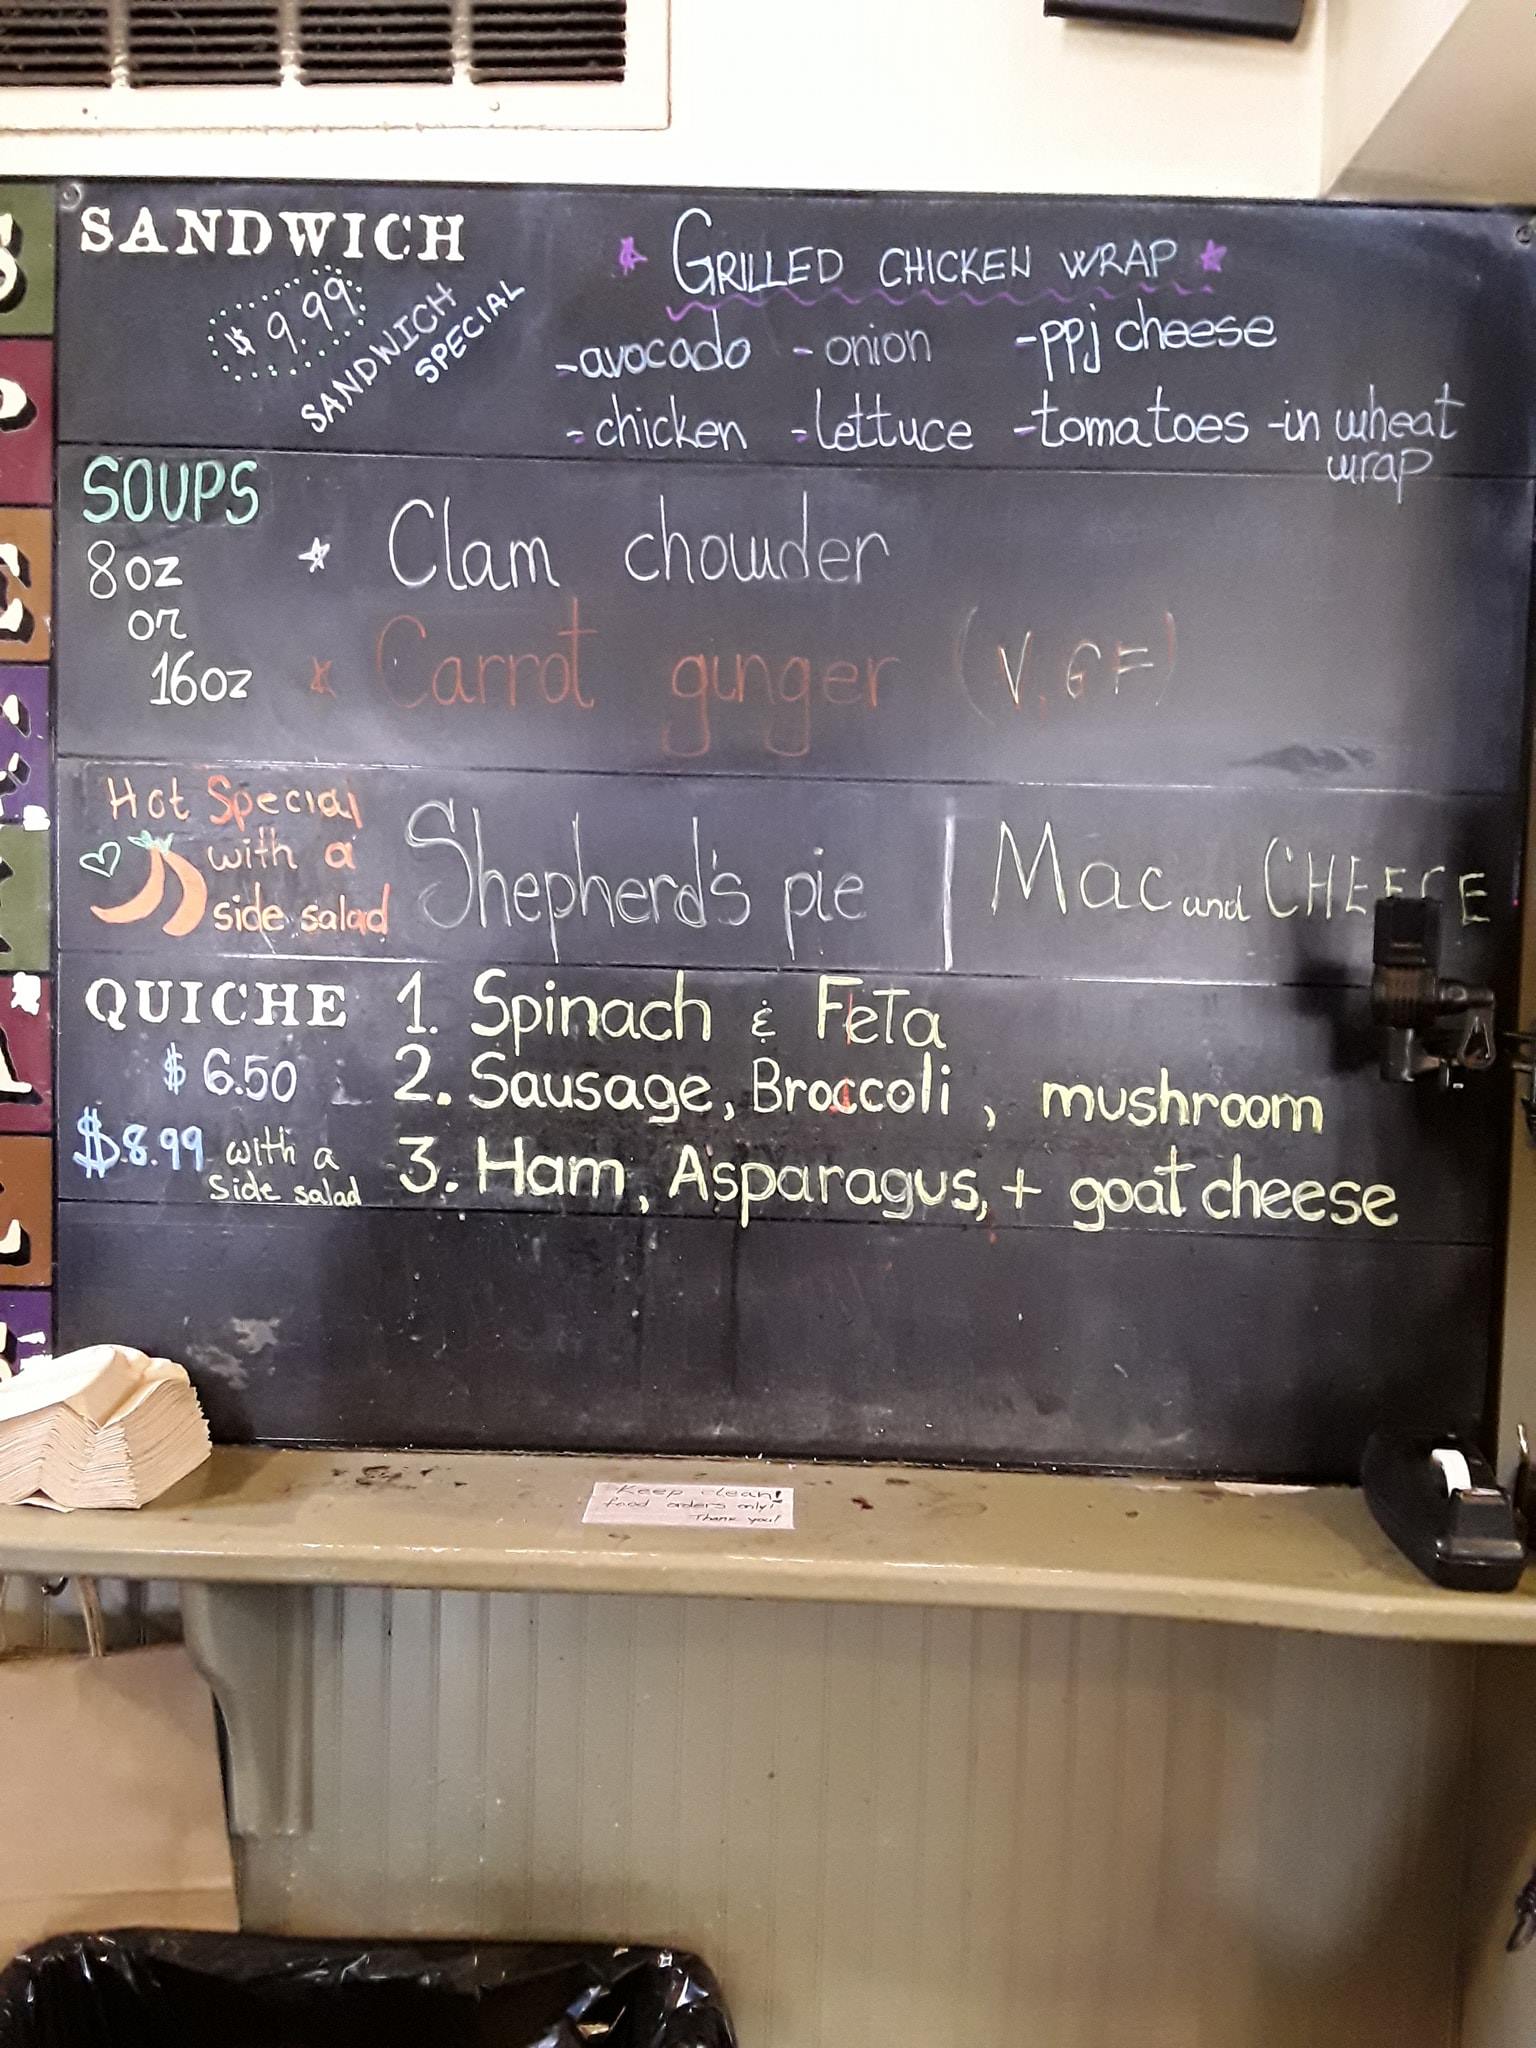 SANDWICH
$ 9.99
SANDWICH
SPECIAL
GRILLED CHICKEN WRAP
-avocado -onion -ppj cheese
-chicken -lettuce -tomatoes -in wheat
wrap
SOUPS
8oz
or
16oz
Clam chowder
Carrot ginger (V, GF)
Hot Special
with a
side salad
Shepherd's pie
Mac and CHEESE
QUICHE
$ 6.50
$8.99 with a
side salad
1. Spinach & FeTa
2. Sausage, Broccoli, mushroom
3. Ham, Asparagus, + goat cheese
Keep clean!
food orders only!
Thank you!